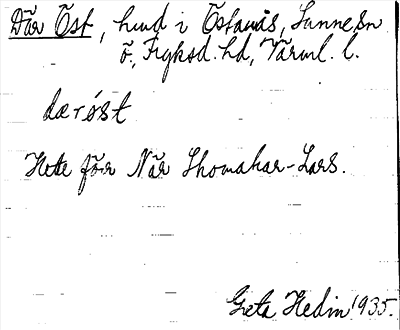 Där Öst, hmd i Östanås, Sunne sn
ö., Fryksd. hd, Värml. l.
dærøst
Heter för När Skomakar-Lars.
Greta Hedin 1935.